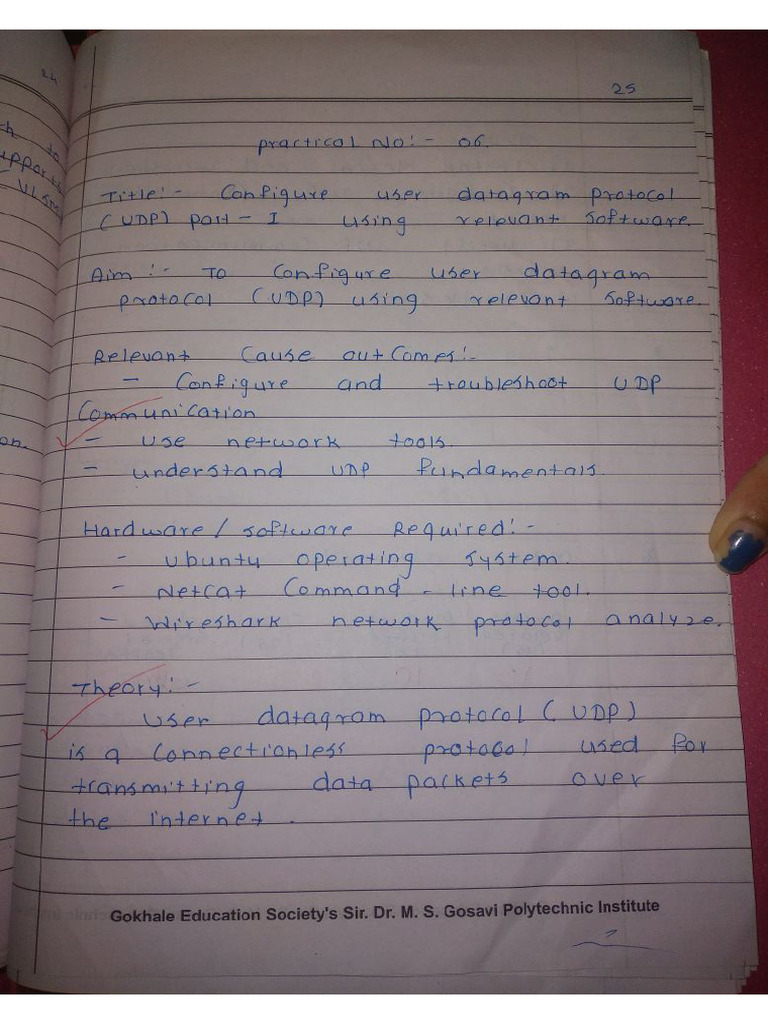 24
25
h to
suppor
on.
Practical No:- 06.
Title:- Configure user datagram protocol
(UDP) part-I using relevant software.
Aim:- To configure user datagram
protocol (UDP) using relevant software.
Relevant Cause outcomes:-
- Configure and troubleshoot UDP
Communication
- Use network tools.
- understand UDP fundamentals.
Hardware/software Required:-
- Ubuntu operating system.
- Netcat Command-line tool.
- Wireshark network protocol analyze.
Theory:-
User datagram protocol (UDP)
is a connectionless protocol used for
transmitting data packets over
the internet.
Gokhale Education Society's Sir. Dr. M. S. Gosavi Polytechnic Institute